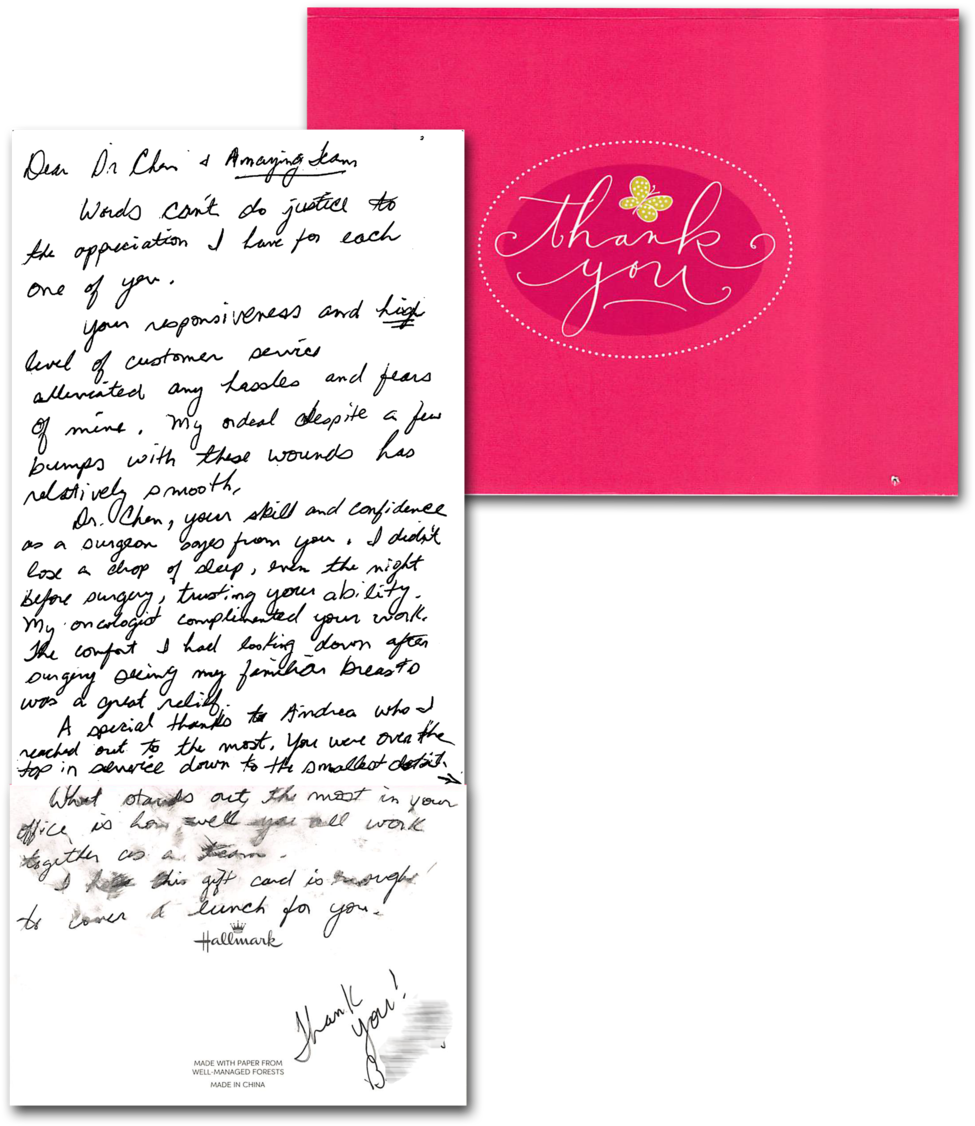 thank
you
Dear Dr Chen & Amazing team
Words can't do justice to
the appreciation I have for each
one of you.
Your responsiveness and high
level of customer service
alleviated any hassles and fears
of mine. My ordeal despite a few
bumps with these wounds has
relatively smooth.
Dr. Chen, your skill and confidence
as a surgeon oozes from you. I didn't
lose a drop of sleep, even the night
before surgery, trusting your ability.
My oncologist complimented your work.
The comfort I had looking down after
surgery seeing my familiar breasts
was a great relief.
A special thanks to Andrea who I
reached out to the most. You were over the
top in service down to the smallest detail.
What stands out the most in your
office is how well you all work
together as a team.
I this gift card is enough
to cover a lunch for you.
Hallmark
Thank
you!
B
MADE WITH PAPER FROM
WELL-MANAGED FORESTS
MADE IN CHINA